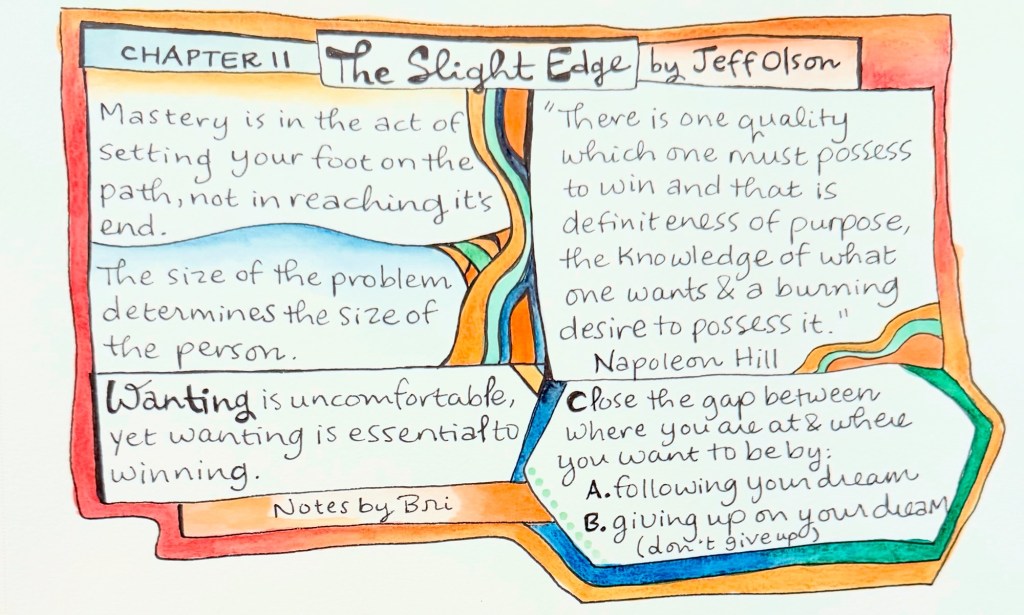 CHAPTER 11 The Slight Edge by Jeff Olson
Mastery is in the act of
setting your foot on the
path, not in reaching it's
end.
The size of the problem
determines the size of
the person.
Wanting is uncomfortable,
yet wanting is essential to
winning.
Notes by Bri
"There is one quality
which one must possess
to win and that is
definiteness of purpose,
the knowledge of what
one wants & a burning
desire to possess it."
Napoleon Hill
Close the gap between
where you are at & where
you want to be by:
A. following your dream
B. giving up on your dream
(don't give up)